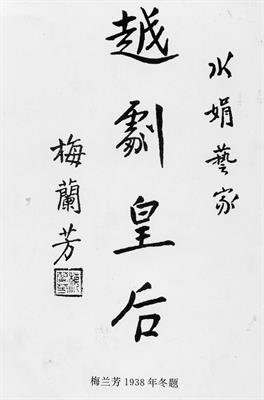 水娟藝家
越劇皇后
梅蘭芳
梅兰芳 1938 年冬题